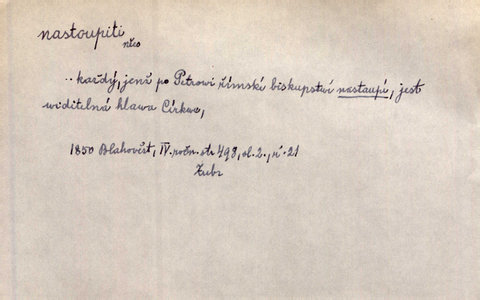 nastoupiti
něco
.. každý, jenž po Petrowi římské biskupství nastaupí, jest
widitelná hlawa Církwe,
1850 Blahověst, IV. ročn. str 493, sl. 2., ř. 21
Zubr